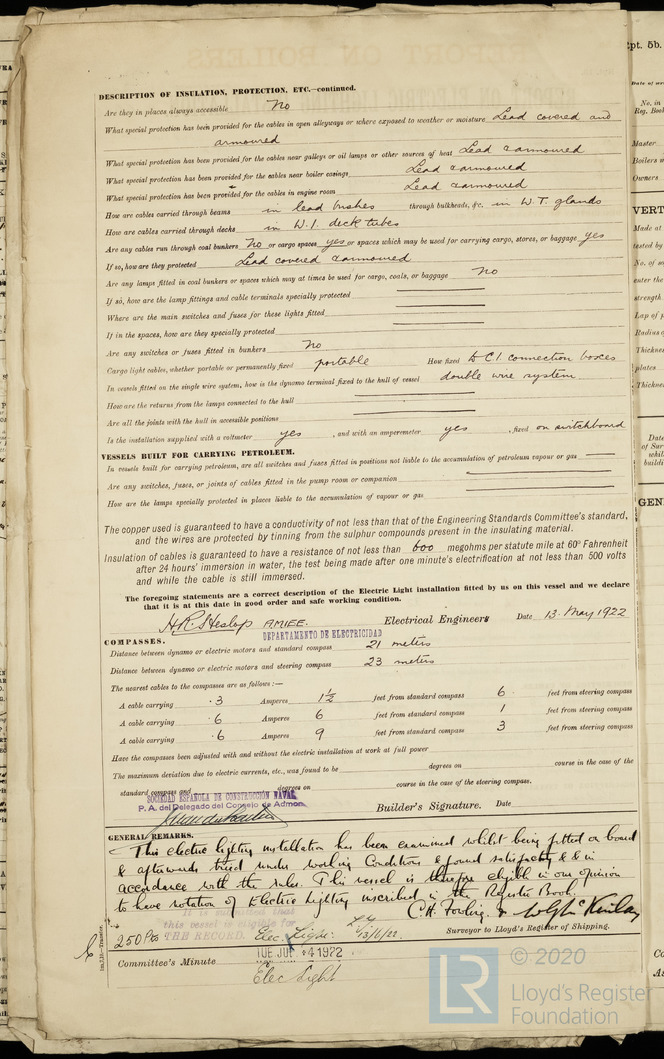 DESCRIPTION OF INSULATION, PROTECTION, ETC.—continued.
Are they in places always accessible No
What special protection has been provided for the cables in open alleyways or where exposed to weather or moisture Lead covered and
armoured
What special protection has been provided for the cables near galleys or oil lamps or other sources of heat Lead & armoured
What special protection has been provided for the cables near boiler casings Lead & armoured
What special protection has been provided for the cables in engine room Lead & armoured
How are cables carried through beams in lead bushes through bulkheads, &c. in W.T. glands
How are cables carried through decks in W.I. deck tubes
Are any cables run through coal bunkers No or cargo spaces yes or spaces which may be used for carrying cargo, stores, or baggage yes
If so, how are they protected Lead covered & armoured
Are any lamps fitted in coal bunkers or spaces which may at times be used for cargo, coals, or baggage No
If so, how are the lamp fittings and cable terminals specially protected
Where are the main switches and fuses for these lights fitted
If in the spaces, how are they specially protected
Are any switches or fuses fitted in bunkers No
Cargo light cables, whether portable or permanently fixed portable How fixed to C.I. connection boxes
In vessels fitted on the single wire system, how is the dynamo terminal fixed to the hull of vessel double wire system
How are the returns from the lamps connected to the hull
Are all the joints with the hull in accessible positions
Is the installation supplied with a voltmeter yes , and with an amperemeter yes , fixed on switchboard
VESSELS BUILT FOR CARRYING PETROLEUM.
In vessels built for carrying petroleum, are all switches and fuses fitted in positions not liable to the accumulation of petroleum vapour or gas
Are any switches, fuses, or joints of cables fitted in the pump room or companion
How are the lamps specially protected in places liable to the accumulation of vapour or gas
The copper used is guaranteed to have a conductivity of not less than that of the Engineering Standards Committee's standard,
and the wires are protected by tinning from the sulphur compounds present in the insulating material.
Insulation of cables is guaranteed to have a resistance of not less than 600 megohms per statute mile at 60° Fahrenheit
after 24 hours' immersion in water, the test being made after one minute's electrification at not less than 500 volts
and while the cable is still immersed.
The foregoing statements are a correct description of the Electric Light installation fitted by us on this vessel and we declare
that it is at this date in good order and safe working condition.
H.R. S Heslop AMIEE. Electrical Engineers Date 13. May 1922
DEPARTAMENTO DE ELECTRICIDAD
COMPASSES.
Distance between dynamo or electric motors and standard compass 21 meters
Distance between dynamo or electric motors and steering compass 23 meters
The nearest cables to the compasses are as follows:—
A cable carrying .3 Amperes 1½ feet from standard compass 6 feet from steering compass
A cable carrying .6 Amperes 6 feet from standard compass 1 feet from steering compass
A cable carrying .6 Amperes 9 feet from standard compass 3 feet from steering compass
Have the compasses been adjusted with and without the electric installation at work at full power
The maximum deviation due to electric currents, etc., was found to be degrees on course in the case of the
standard compass and degrees on course in the case of the steering compass.
SOCIEDAD ESPAÑOLA DE CONSTRUCCIÓN NAVAL
P. A. del Delegado del Consejo de Admon.
Builder's Signature. Date
GENERAL REMARKS.
This electric lighting installation has been examined whilst being fitted on board
& afterwards tried under working Conditions & found satisfactory & in
accordance with the rules. This vessel is therefore eligible in our opinion
to have notation of Electric Lighting inscribed in the Register Book.
It is submitted that
this vessel is eligible for
THE RECORD. Elec. Light. 13/6/22
C.H. Fowling &
Surveyor to Lloyd's Register of Shipping.
250 Pts
Committee's Minute TUE JUL -4 1922
Elec Light
Rpt. 5b.
No. in
Reg. Book
Master
Boilers
Owners
VERT
Made at
tested by
No. of
enter the
strength
Lap of
Radius
Thickness
plates
Thickness
Date
of Sur
whil
buildi
GEN
LR
© 2020
Lloyd's Register
Foundation